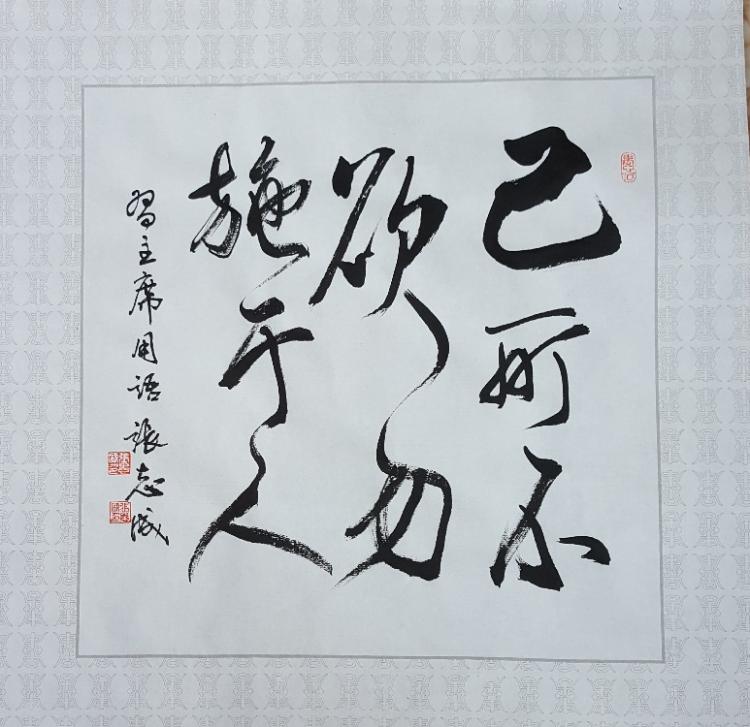 己所不
欲勿
施于人
习主席用语 張志成